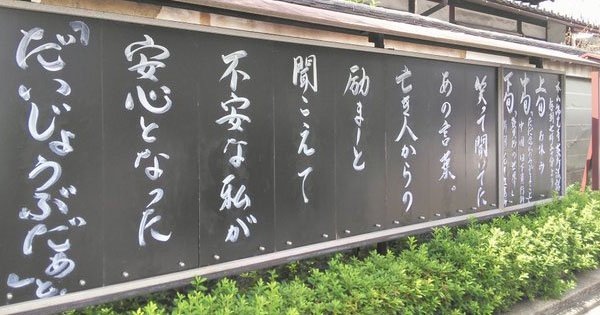 上旬 お休み
中旬
下旬
笑って聞いてた
あの言葉。
亡き人からの
励ましと
聞こえて
不安な私が
安心となった
「だいじょうぶだぁと」